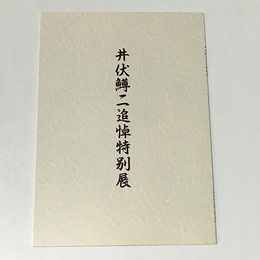 井伏鱒二追悼特別展